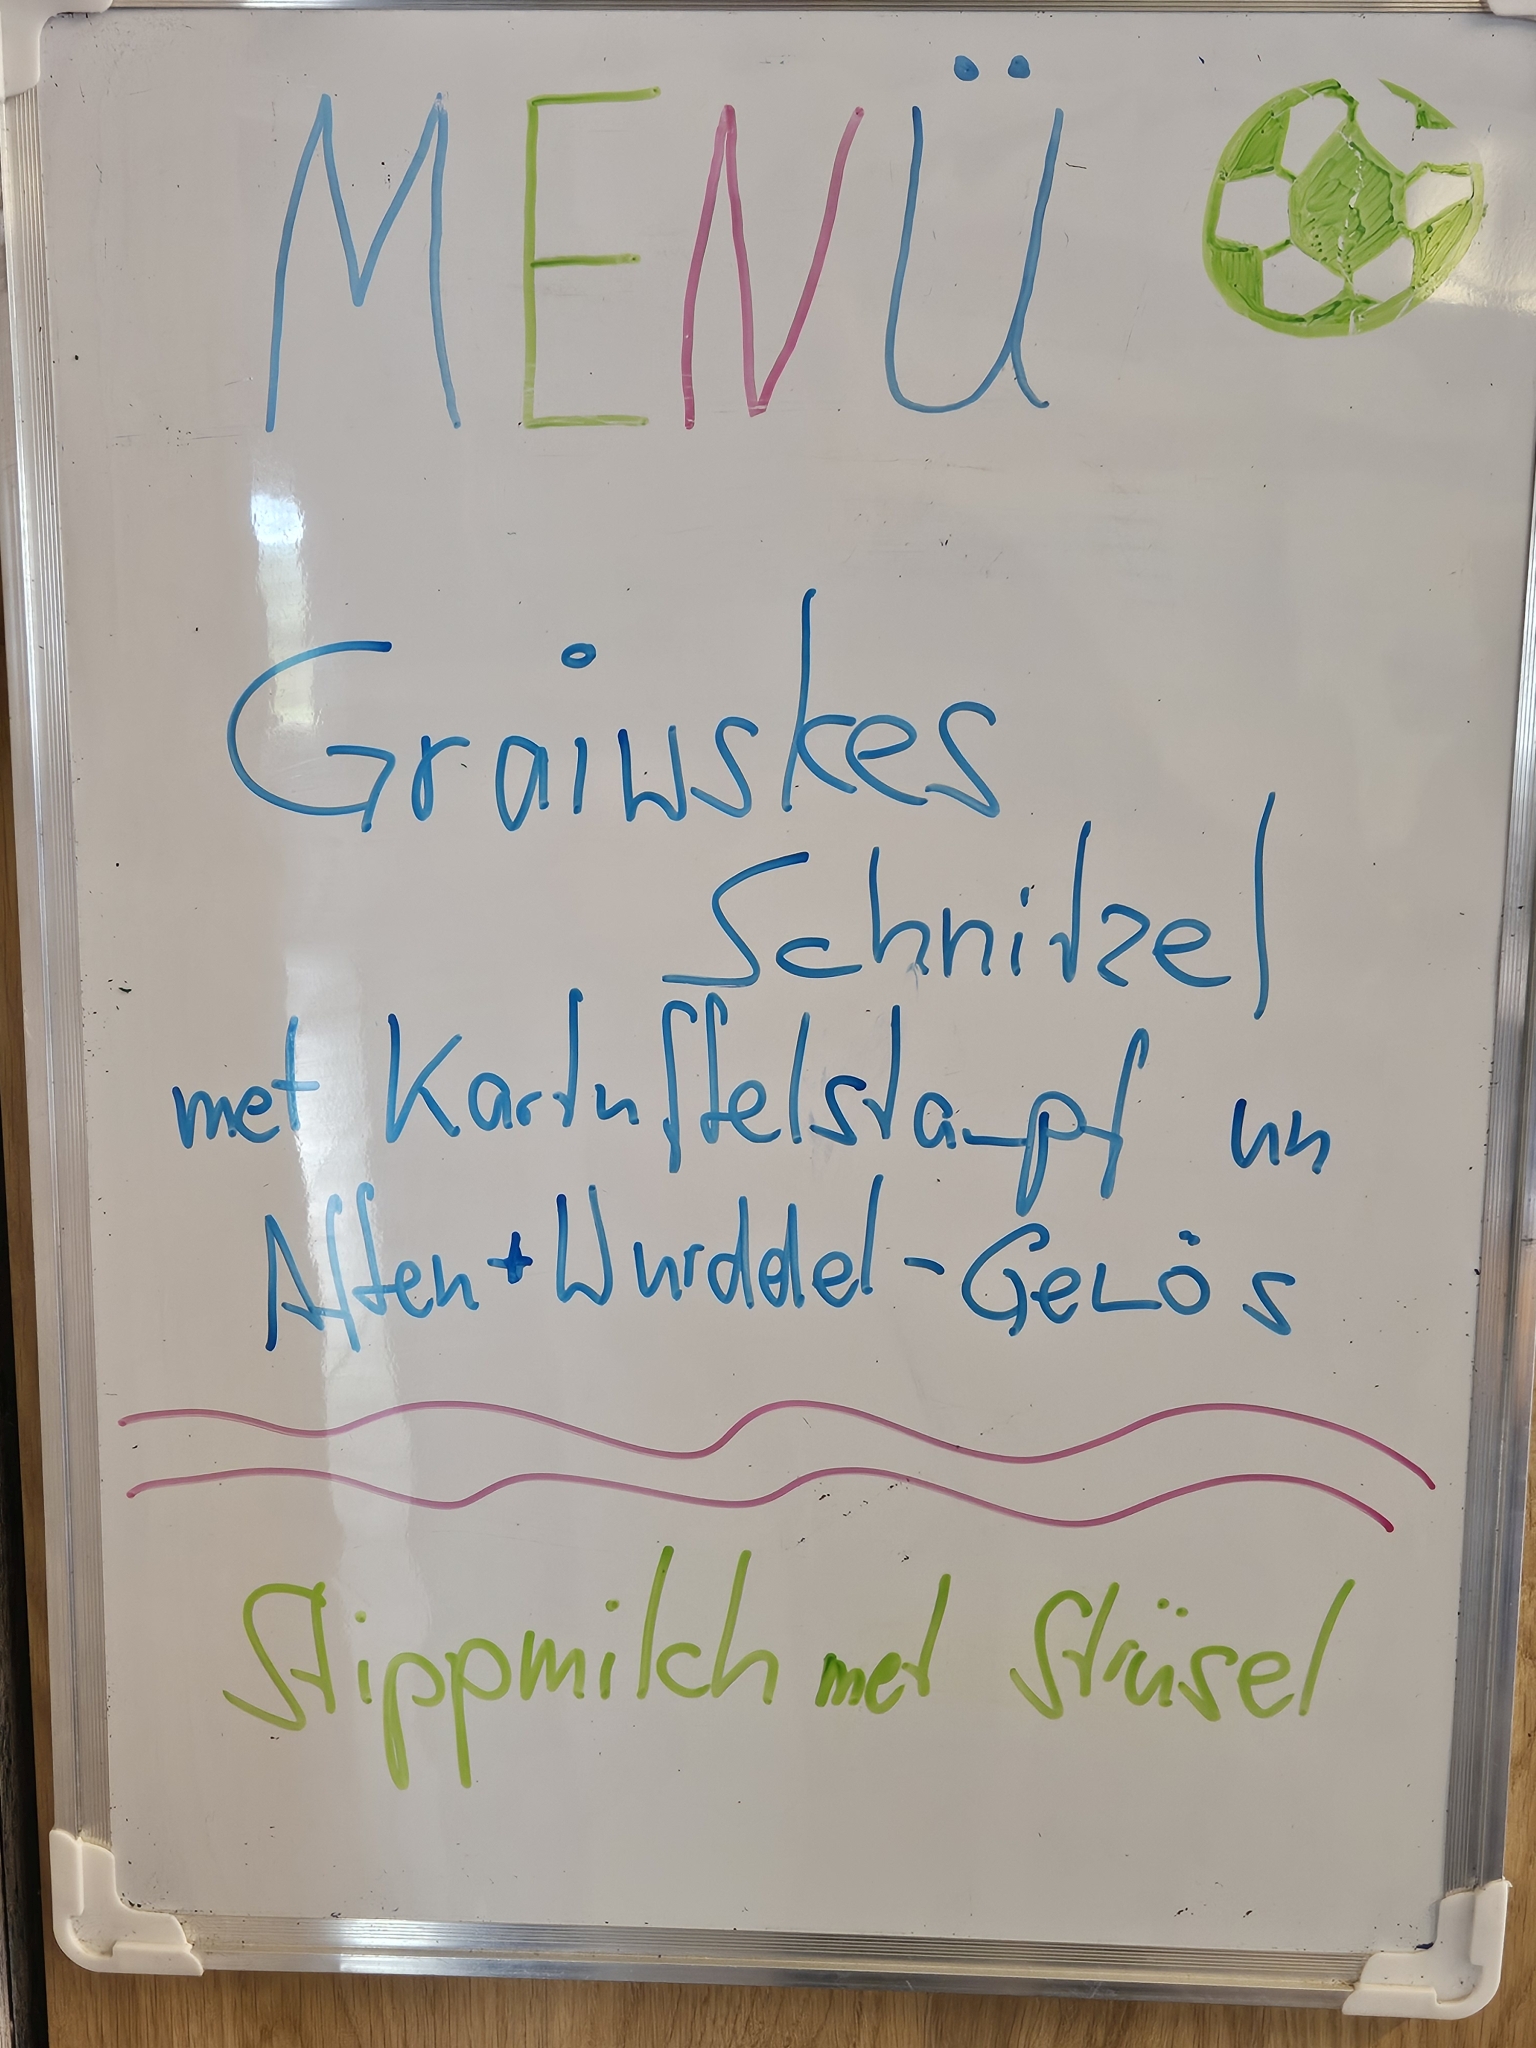 MENÜ
Graiwskes
Schnitzel
met Kartuffelstampf un
Aften+Wurddel-Gelös
Stippmilch met Strüsel